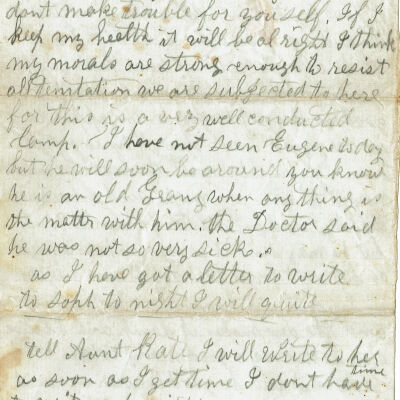 dont make trouble for youself. If I
keep my health it will be al right I think
my morals are strong enough to resist
all temtation we are subjected to here
for this is a very well conducted
Camp. I have not seen Eugene to day
but he will soon be around you know
he is an old Grany when any thing is
the matter with him. the Doctor said
he was not so very sick.
as I have got a letter to write
to soph to night I will quite
tell Aunt Kate I will write to her
as soon as I get time I dont have time